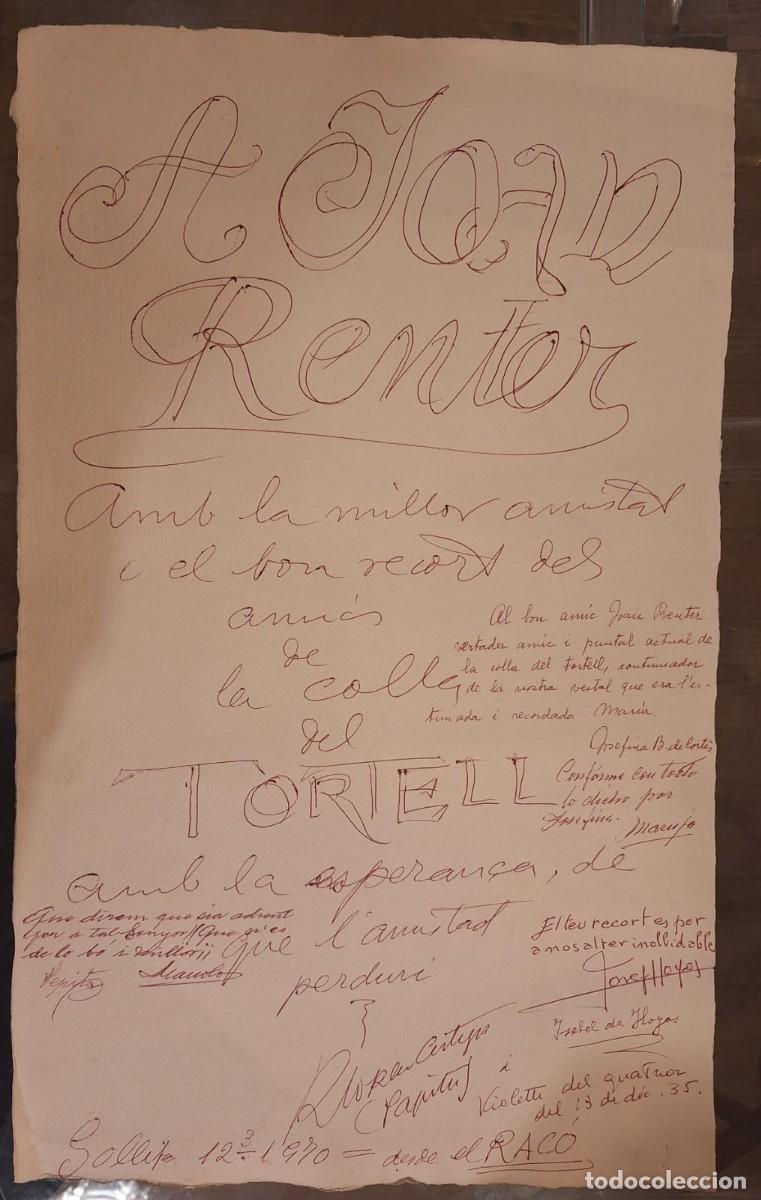 A JOAN
Renter
Amb la millor amistat
i el bon recort dels
amics
de
la colla
del
TORTELL
amb la esperança, de
que l'amistad
perduri
Al bon amic Joan Renter
vertader amic i puntal actual de
la colla del tortell, continuador
de la nostra vestal que era l'es-
timada i recordada Maria.
Josefina B. de Cortés
Conforme con todo
lo dicho por
Josefina.
Maruja
Que direm que sia
per a tal Senyor!! Que
de lo bó i millor¡¡
Pepita Manolo
El teu recort es per
a nosalter inollidable
Josep Hoyos
Isabel de Hoyos
(Papitus) i
Violette del quatuor
del 13 de déc. 35.
12-3-1970 = desde el RACÓ
todocoleccion